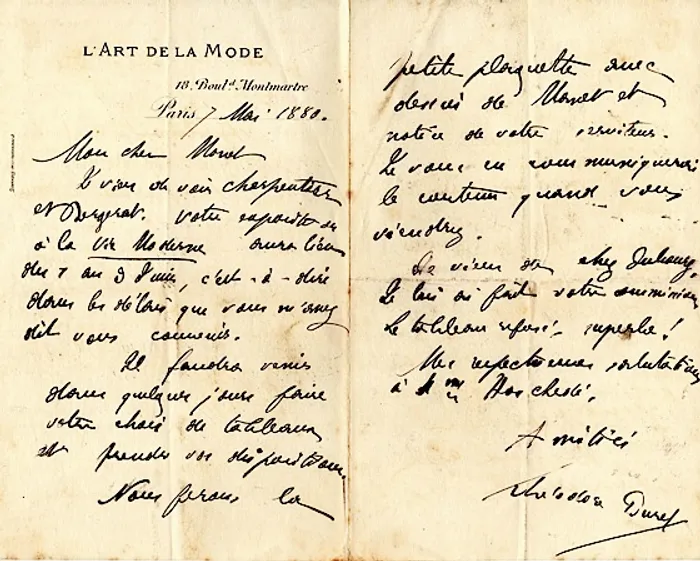 L'ART DE LA MODE
18, Boul.d Montmartre
Paris, 7 Mai 1880.
Mon cher Monet
Je viens de voir Charpentier
et Bergerat. Votre exposition
à la Vie Moderne aura lieu
du 7 au 9 Juin, c'est-à-dire
dans les délais que vous m'avez
dit vous convenir.
Il faudra venir
dans quelques jours faire
votre choix de tableaux
et prendre vos dispositions.
Nous ferons la
petite plaquette avec
dessin de Monet et
notice de votre serviteur.
Je vous en communiquerai
le contenu quand vous
viendrez.
Je viens de chez
Je lui ai fait votre commission
Le tableau refusé superbe!
Mes respectueuses salutations
à Mme Hoschedé.
Amitiés
Théodore Duret